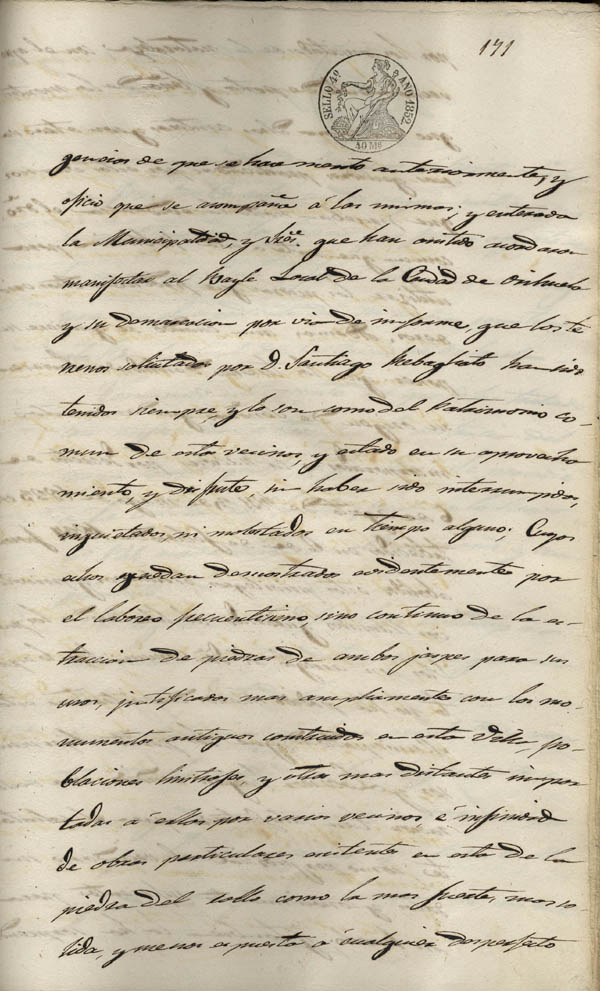 171
SELLO 4º AÑO 1852.
40 Ms
gencias de que se hace mento anteriormente, y
oficio que se acompaña á los mismos; y enterada
la Municipalidad, y Sres. que han asistido acordaron
manifestar al Bayle Local de la Ciudad de Orihuela
y su demarcacion por via de informe, que los te-
rrenos solicitados por D. Santiago Rebagliato han sido
tenidos siempre, y lo son como del Patrimonio co-
mun de estos vecinos, y estado en su aprovecha
miento, y disfrute, sin haber sido interrumpidos,
inquietados, ni molestados en tiempo alguno; Cuyos
echos quedan demostrados evidentemente por
el laboreo frecuentisimo, sino continuo de la es-
traccion de piedras de ambos jaspes para sus
usos, justificados mas ampliamente con los mo-
numentos antiguos construidos en esta Villa, po-
blaciones limitrofes, y otras mas distantes impor
tadas á ellas por varios vecinos, é infinidad
de obras particulares existentes en esta de la
piedra del como la mas fuerte, mas so-
lida, y menos espuesta á cualquier desperfecto